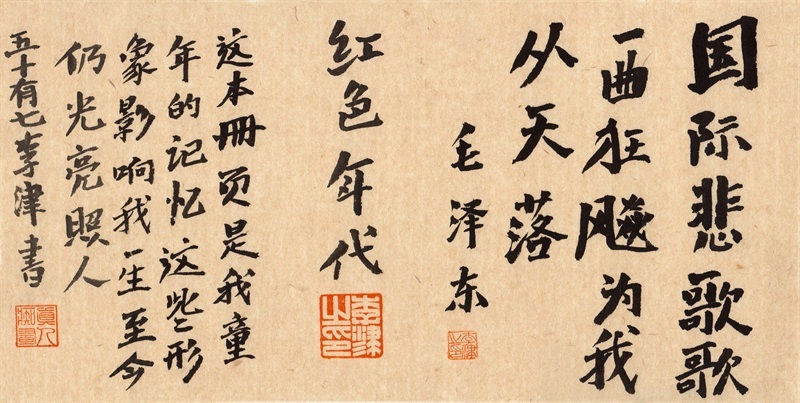 国际悲歌歌
一曲狂飚为我
从天落
毛泽东
红色年代
李津之印
这本册页是我童
年的记忆这些形
象影响我一生至今
仍光亮照人
五十有七李津书